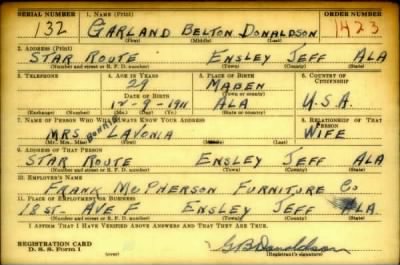 SERIAL NUMBER 1. NAME (Print) ORDER NUMBER
132 GARLAND BELTON DONALDSON 1423
(First) (Middle) (Last)
2. ADDRESS (Print)
STAR ROUTE ENSLEY JEFF ALA
(Number and street or R. F. D. number) (Town) (County) (State)
3. TELEPHONE 4. AGE IN YEARS 5. PLACE OF BIRTH 6. COUNTRY OF CITIZENSHIP
29 MADEN
DATE OF BIRTH (Town or county)
12-9-1911 ALA U.S.A.
(Exchange) (Number) (Mo.) (Day) (Yr.) (State or country)
7. NAME OF PERSON WHO WILL ALWAYS KNOW YOUR ADDRESS 8. RELATIONSHIP OF THAT PERSON
MRS BONNIE LAVONIA WIFE
(Mr., Mrs., Miss) (First) (Middle) (Last)
9. ADDRESS OF THAT PERSON
STAR ROUTE ENSLEY JEFF ALA
(Number and street or R. F. D. number) (Town) (County) (State)
10. EMPLOYER'S NAME
FRANK McPHERSON FURNITURE CO
11. PLACE OF EMPLOYMENT OR BUSINESS
18 ST- AVE F ENSLEY JEFF ALA.
(Number and street or R. F. D. number) (Town) (County) (State)
I AFFIRM THAT I HAVE VERIFIED ABOVE ANSWERS AND THAT THEY ARE TRUE.
REGISTRATION CARD
D. S. S. FORM 1 (over) G B Donaldson
(Registrant's signature)